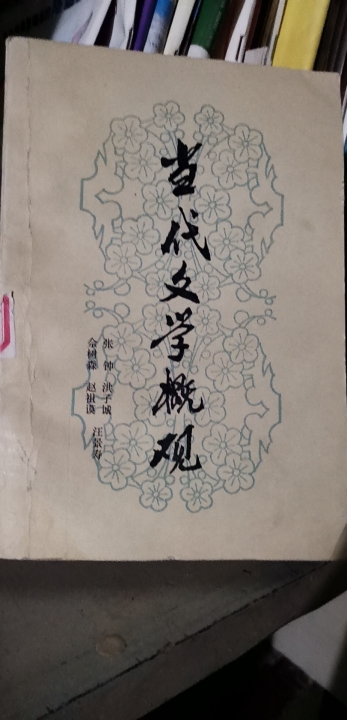 当代文学概观
张 钟 洪子诚
佘树森 赵祖谟 汪景寿